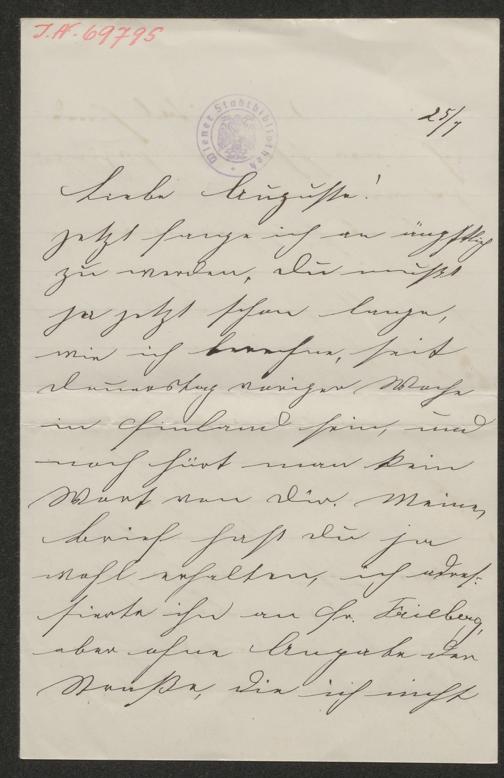 J.N. 69795
Wiener Stadtbibliothek
25/7
Liebe Auguste!
Jetzt fange ich an ängstlich
zu werden, Du mußt
ja jetzt schon lange,
wie ich berechne, seit
Donnerstag voriger Woche
in Finland sein, und
noch hört man kein
Wort von Dir. Meinen
Brief hast Du ja
wohl erhalten, ich adres-
sierte ihn an Fr. Freiberg,
aber ohne Angabe der
Straße, die ich nicht